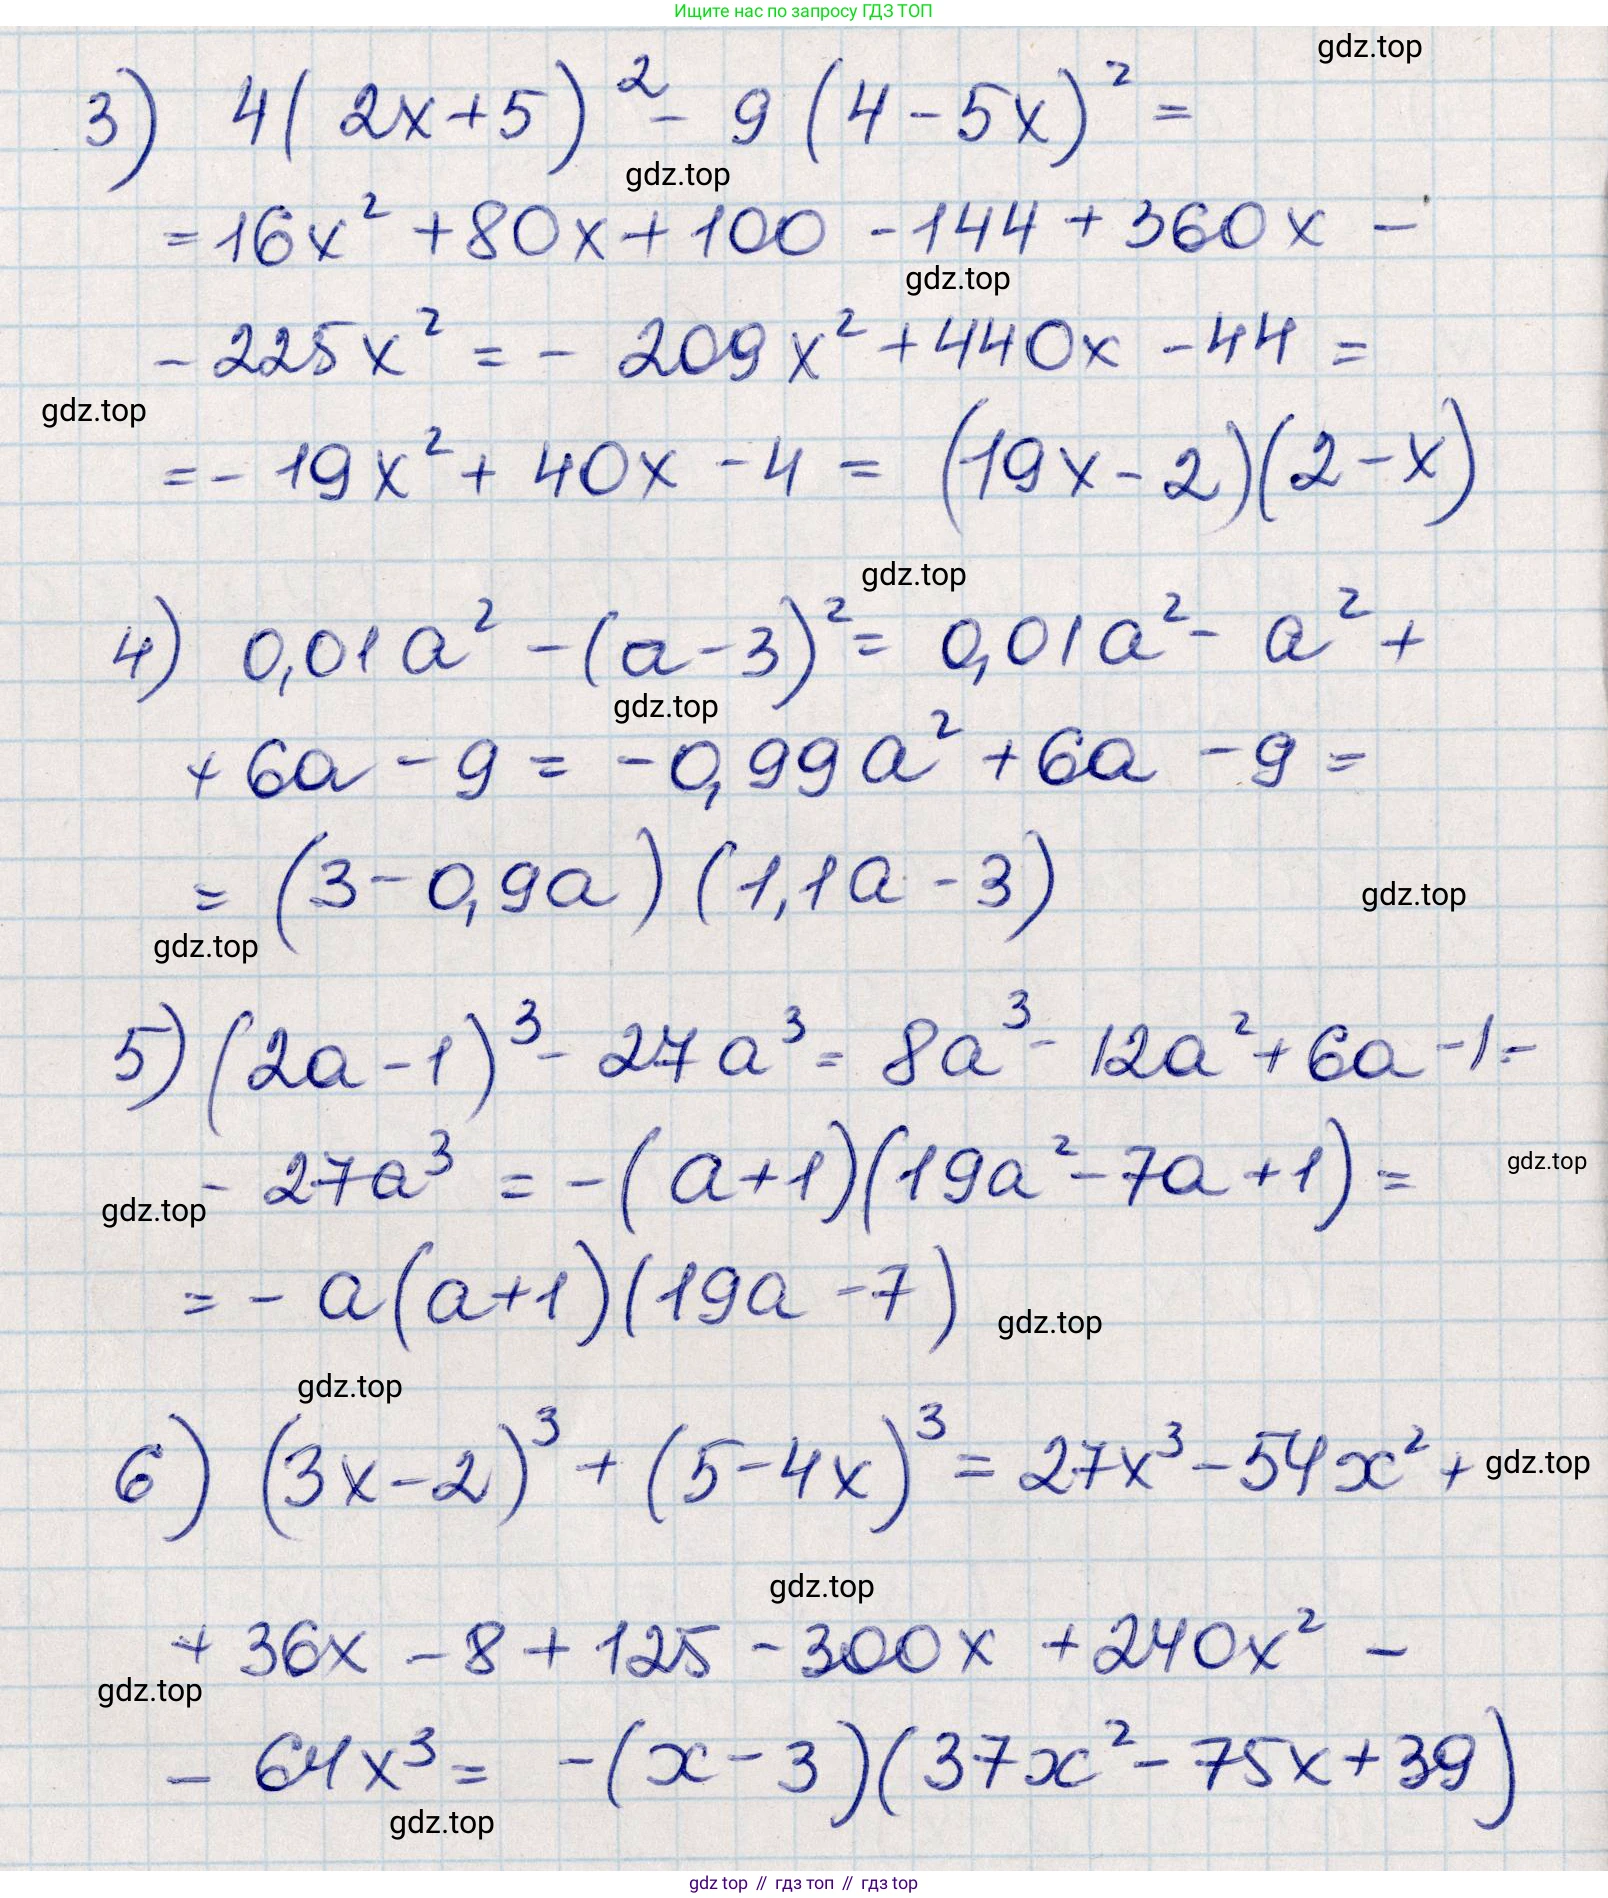 Ищите нас по запросу ГДЗ ТОП
gdz.top
3) 4(2x+5)² - 9(4-5x)² =
gdz.top
= 16x² + 80x + 100 - 144 + 360x -
gdz.top
- 225x² = - 209x² + 440x - 44 =
gdz.top
= - 19x² + 40x - 4 = (19x - 2)(2 - x)
gdz.top
4) 0,01a² - (a-3)² = 0,01a² - a² +
gdz.top
+ 6a - 9 = -0,99a² + 6a - 9 =
= (3 - 0,9a)(1,1a - 3)
gdz.top
gdz.top
5) (2a-1)³ - 27a³ = 8a³ - 12a² + 6a - 1 -
- 27a³ = -(a+1)(19a² - 7a + 1) =
gdz.top
gdz.top
= - a(a+1)(19a - 7)
gdz.top
gdz.top
6) (3x-2)³ + (5-4x)³ = 27x³ - 54x² +
gdz.top
gdz.top
+ 36x - 8 + 125 - 300x + 240x² -
gdz.top
- 64x³ = -(x-3)(37x² - 75x + 39)
gdz.top
gdz top // гдз топ // гдз top